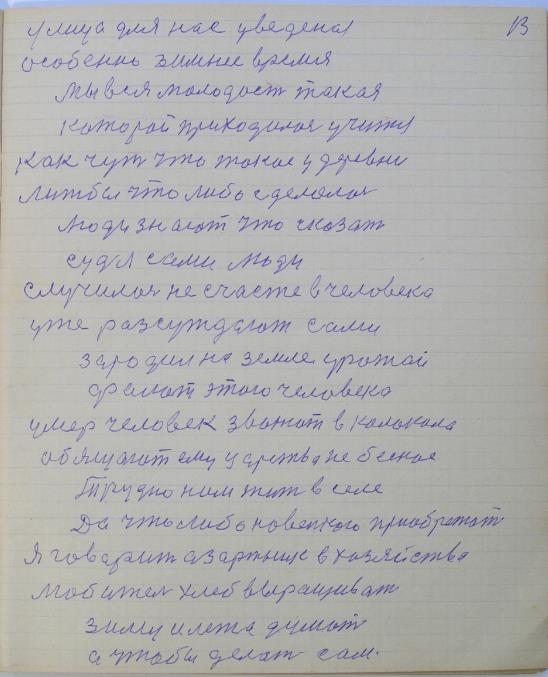 13
улица для нас уведена
особенно зимнее время
мы вся молодост такая
которой приходилоя учитя
как чут что такое у деревни
лижбы что либо сделолоя
люди знают что сказат
судя сами люди
случилоя не счасте в человека
уже разсуждают сами
зародил на земле урожай
фалат этого человека
умер человек звонют в колокола
обящают ему царства не бесное
Трудно ним жит в селе
Да что либо новенкого приобретат
Я говарит азартныс в хозяйства
любител хлеб выращиват
зиму и лета думат
а чтобы делат сам.